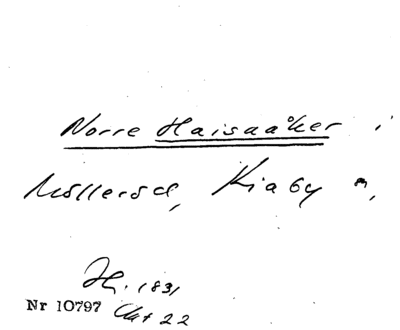 Norre Haisaåker i
Mölleröd, Kiaby n,
Hi. 1831
Nr 10797 Akt 22